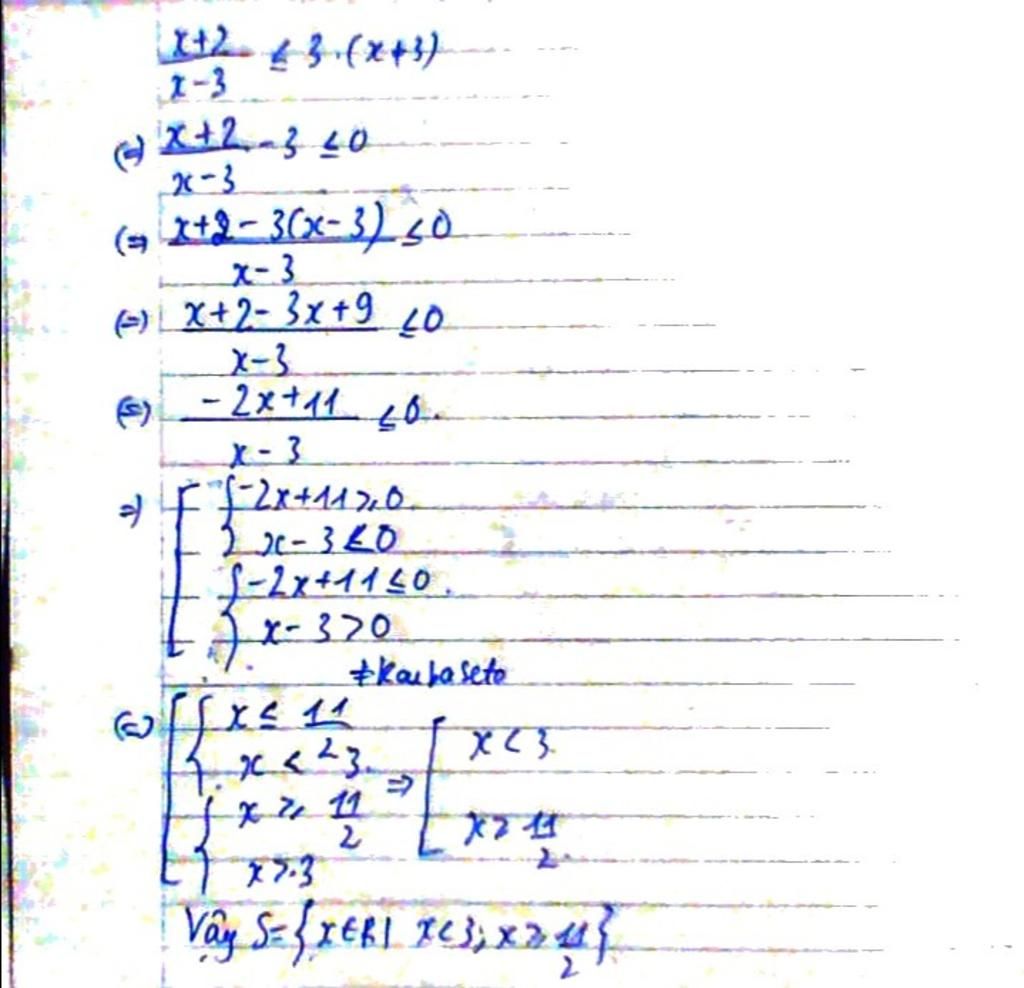 x+2/x-3 ≤ 3.(x+3)
(=) x+2/x-3 - 3 ≤ 0
(=) x+2-3(x-3)/x-3 ≤ 0
(=) x+2-3x+9/x-3 ≤ 0
(=) -2x+11/x-3 ≤ 0.
=) [ { -2x+11 ≥ 0.
x-3 < 0
{ -2x+11 ≤ 0.
x-3 > 0
(=) [ { x ≤ 11/2
x < 3. => [ x < 3
{ x ≥ 11/2 x ≥ 11/2.
x > 3
Vậy S={x∈R| x<3; x ≥ 11/2}